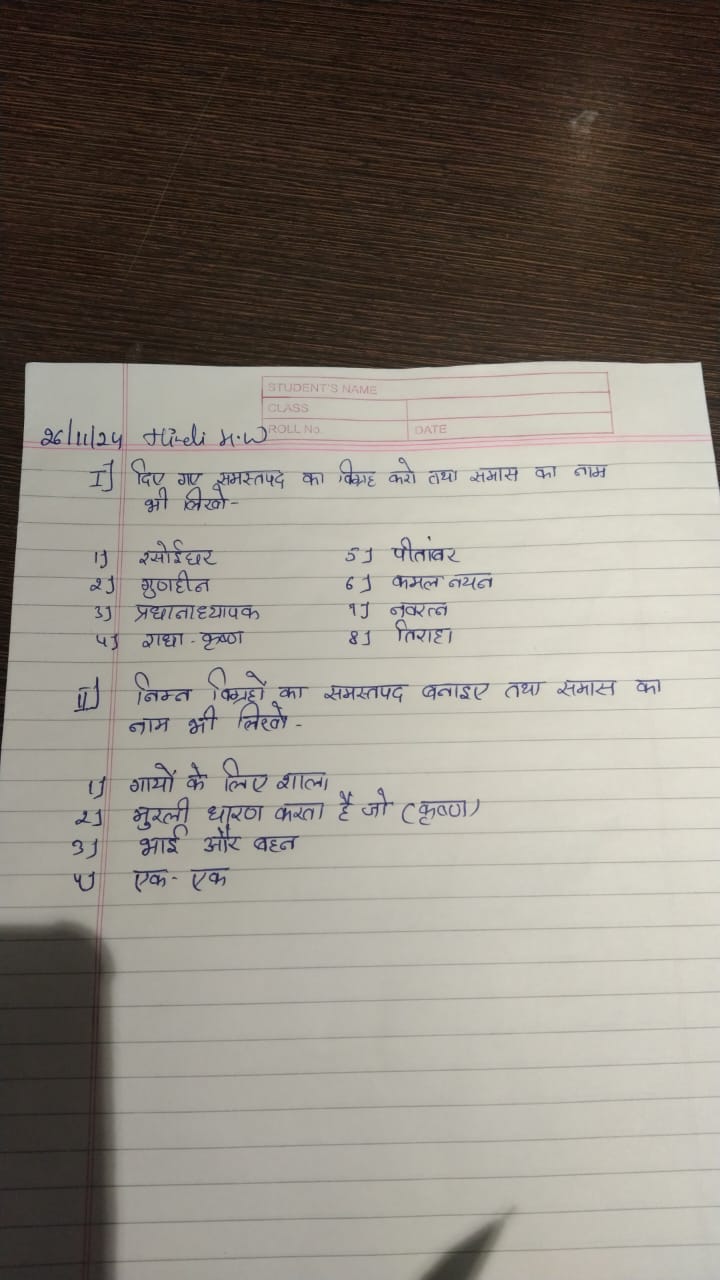 STUDENT'S NAME
CLASS
ROLL No. DATE
26/11/24 Hindi H.W
I] दिए गए समस्तपद का विग्रह करो तथा समास का नाम
भी लिखो-
1] रसोईघर 5] पीतांबर
2] गुणहीन 6] कमल नयन
3] प्रधानाध्यापक 7] नवरत्न
4] राधा - कृष्ण 8] तिराहा
II] निम्न विग्रहों का समस्तपद बनाइए तथा समास का
नाम भी लिखो-
1] गायों के लिए शाला
2] मुरली धारण करता है जो (कृष्ण)
3] भाई और बहन
4] एक - एक